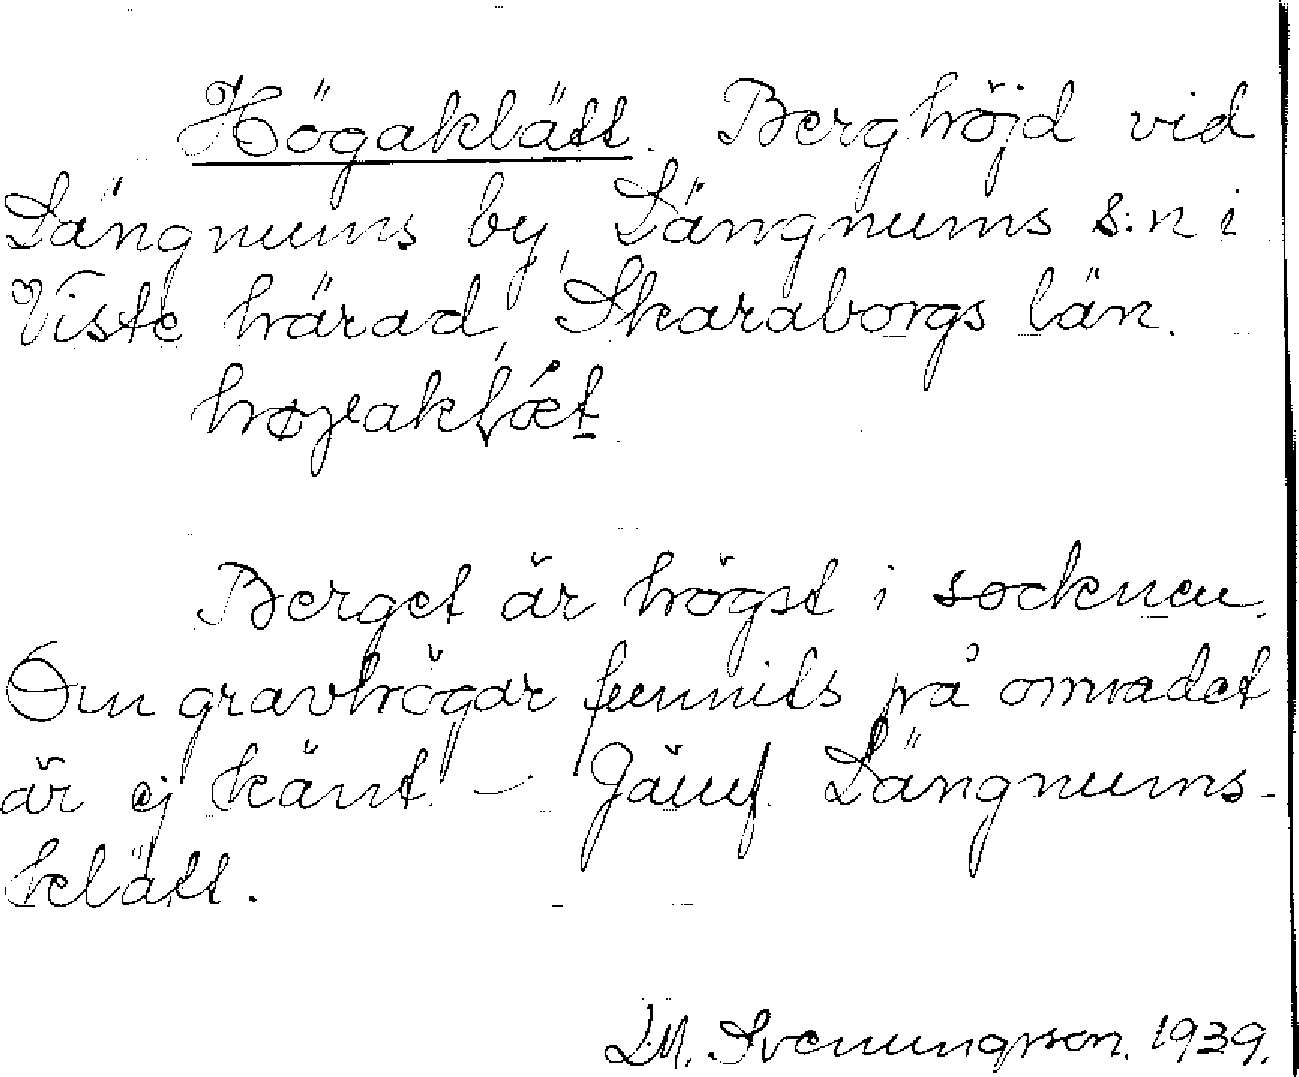 Högaklätt. Berghöjd vid
Längnums by, Längnums s:n i
Viste härad, Skaraborgs län.

Berget är högst i socknen.
Om gravhögar funnits på området
är ej känt. – Jämf. Längnums-
klätt.
D.M. Svenungsson. 1939.